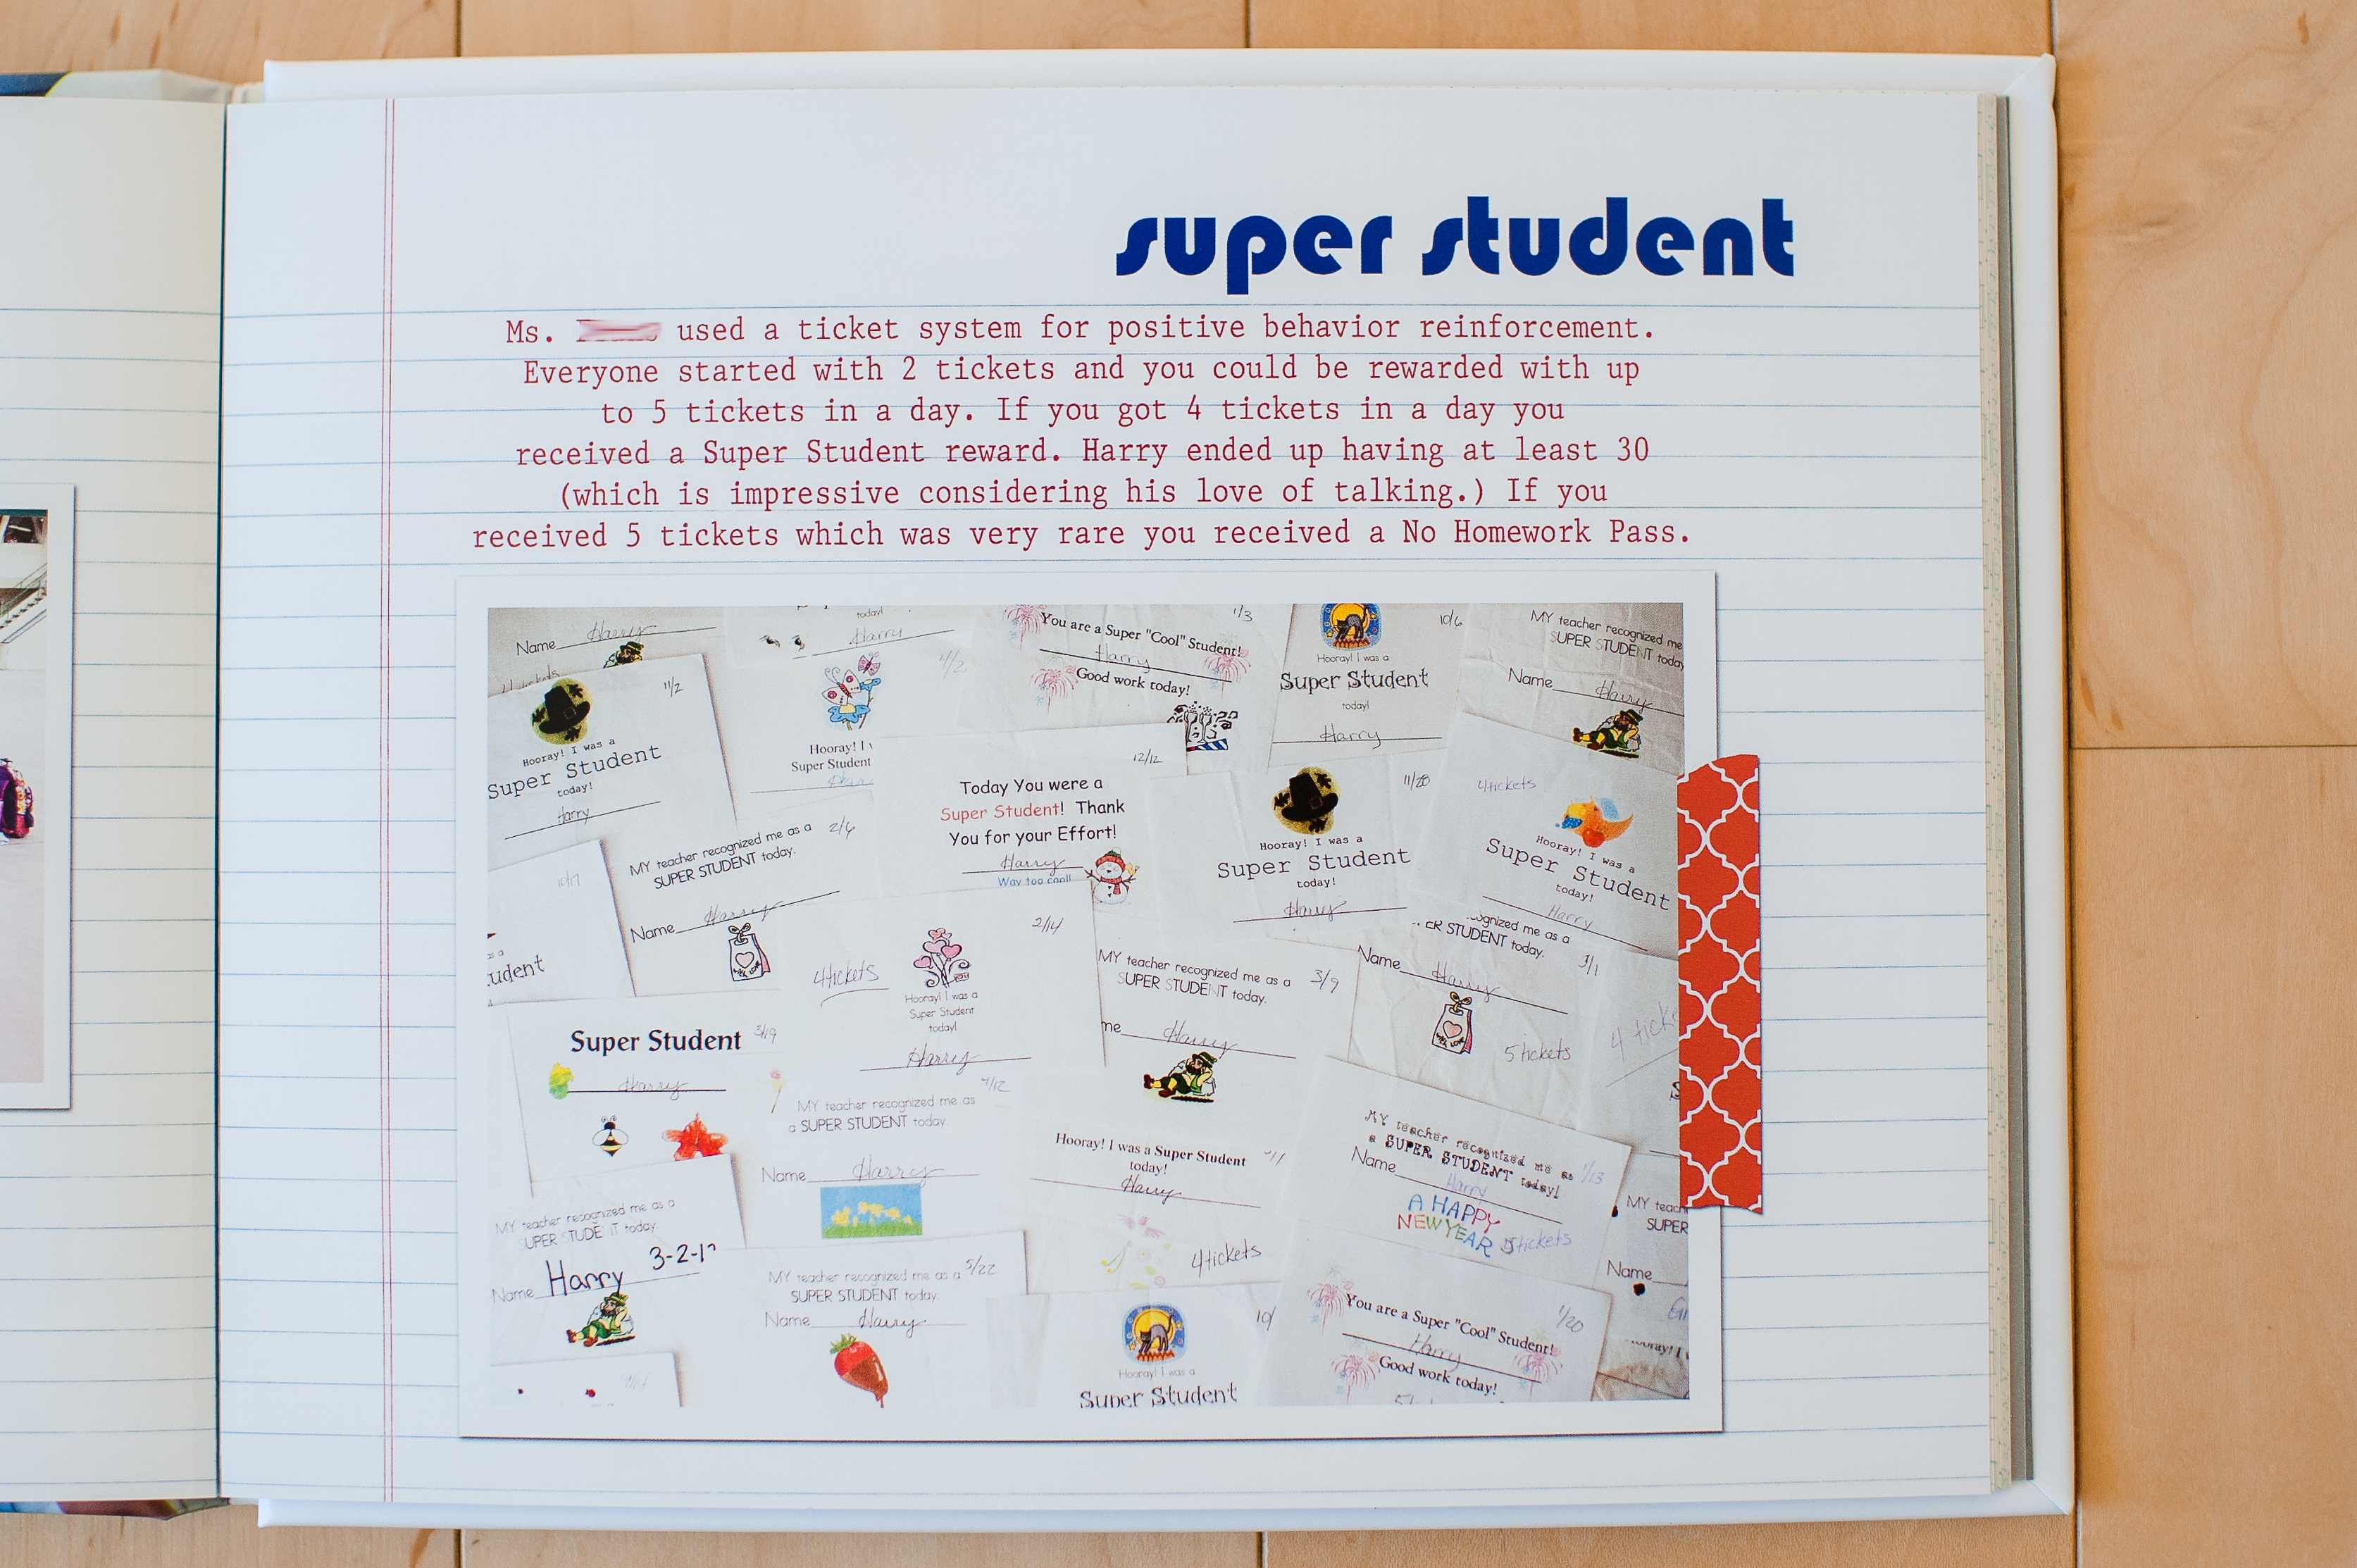 super student
Ms. used a ticket system for positive behavior reinforcement.
Everyone started with 2 tickets and you could be rewarded with up
to 5 tickets in a day. If you got 4 tickets in a day you
received a Super Student reward. Harry ended up having at least 30
(which is impressive considering his love of talking.) If you
received 5 tickets which was very rare you received a No Homework Pass.
Name Harry
today!
Harry
1/3
You are a Super "Cool" Student!
Harry
Good work today!
10/6
Hooray! I was a
Super Student
today!
Harry
MY teacher recognized me
SUPER STUDENT today
Name Harry
11/2
Hooray! I was a
Super Student
today!
Harry
Hooray! I
Super Student
12/12
Today You were a
Super Student! Thank
You for your Effort!
Harry
Way too cool!
11/28
Hooray! I was a
Super Student
today!
Harry
4 tickets
Hooray! I was a
Super Student
today!
Harry
2/6
MY teacher recognized me as a
SUPER STUDENT today.
Name Harry
2/14
4 tickets
Hooray! I was a
Super Student
today!
Harry
MY teacher recognized me as a
SUPER STUDENT today.
3/9
Harry
me as a
STUDENT today.
3/1
Name Harry
5 tickets
Super Student
3/19
Harry
MY teacher recognized me as
a SUPER STUDENT today
Name Harry
Hooray! I was a Super Student
today!
Harry
4 tickets
MY teacher recognized me as
a SUPER STUDENT today!
1/13
Name Harry
A HAPPY
NEW YEAR
5 tickets
MY teacher recognized me as a
SUPER STUDENT today.
3-2-1
Name Harry
MY teacher recognized me as a
5/22
SUPER STUDENT today.
Name Harry
10/
Hooray! I was a
Super Student
You are a Super "Cool" Student!
1/20
Harry
Good work today!
SUPER
Name